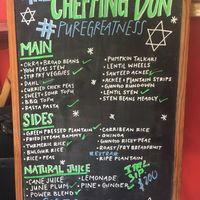 THE CHEFFING DON
#PUREGREATNESS
MAIN
• OKRA + BROAD BEANS
• YOW PEAS STEW
• STIR FRY VEGGIES
• DAHL
• CURRIED CHICK PEAS
• SWEET + SOUR TOFU
• BBQ TOFU
• PASTA
• PUMPKIN TALKARI
• LENTIL WHEELS
• SAUTEED ACKEE
• ACKEE + PLANTAIN STRIPS
• GUNGO RUNDOWN
• LENTIL STEW
• STEW BEANS MEATLY
SIDES
• GREEN PRESSED PLANTAIN
• FRIED/STEAM BAMMY
• TURMERIC RICE
• BULGUR
• RICE + PEAS
• CARIBBEAN RICE
• QUINOA
• GUNGO RICE + PEAS
• ROAST/FRY BREADFRUIT
• RIPE PLANTAIN
NATURAL JUICE
• CANE JUICE
• JUNE PLUM
• POWER BLEND
• LEMONADE
• PINE + GINGER